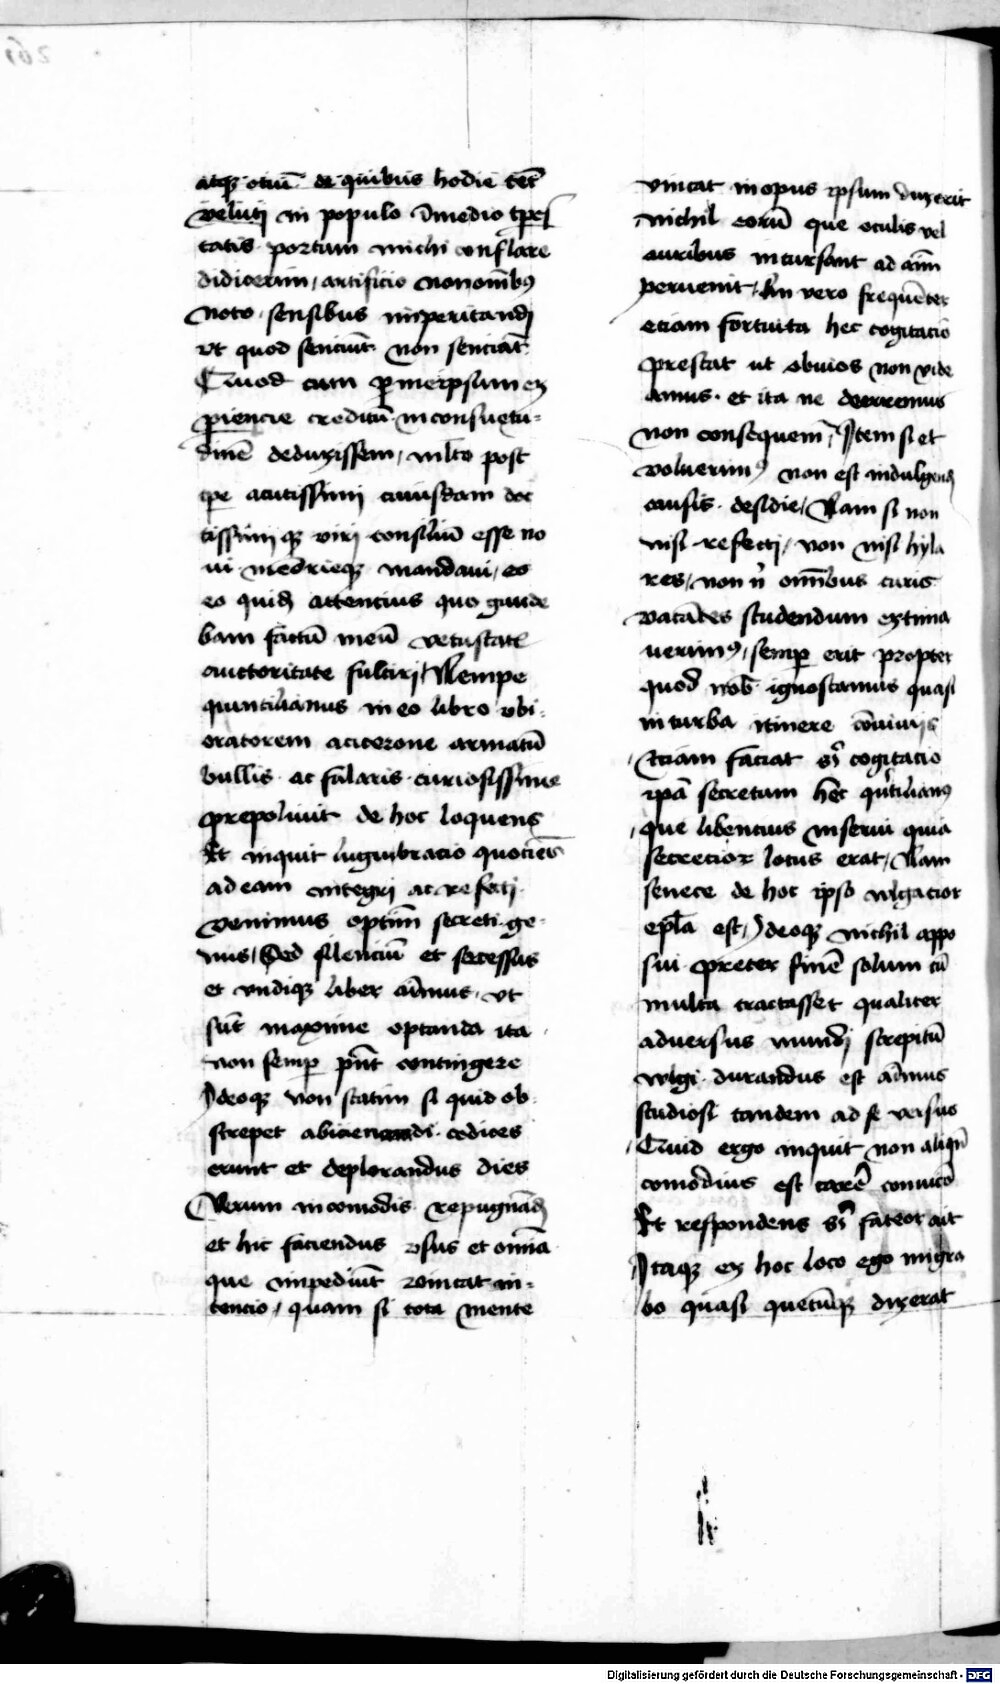 atqꝫ otiū de quibus hodie tct̄
veluti in populo ī medio tp̄es
tatis portum michi conflare
didicerim / artificio non om̄ibꝰ
noto sensibus imperitandi
ut quod senciūt non senciāt
Quod cum ꝑ meipsum ex
periencie creditū in consuetu-
dinē deduxissem / mlto post
tp̄e acutissimi cuiusdam doc
tissimiqꝫ viri consiliū esse no
ui memorieqꝫ mandaui / eo
eo quidē attencius quo gaude
bam factū meū vetustatē
auctoritate fulciri / Nempe
quintilianus in eo libro ubi
oratorem a cicerone armatū
bullis ac falaris curiosissime
prepoliuit de hoc loquens
Et inquit lugubracio quociēs
ad eam integri ac refecti
venimus optim̄ secreti ge-
nus / Sed silenciū et secessus
et undiqꝫ liber aīmus ut
sūt maxime optanda ita
non semꝑ pn̄t contingere
Ideoqꝫ non statim si quid ob-
strepet abiciendi codices
erunt et deplorandus dies
Verum incomodis repugnādū
et hic faciendus usus et om̄ia
que impediūt vincat in-
tencio / quam si tota mente
vincat in opus ipsum duxerit
Nichil eorū que oculis vel
auribus incursant ad aīm
perueniet / An vero frequēter
etiam fortuita hec cogitacio
prestat ut obuios non vide
amus et ita ne deerremus
non consequem̄ / Item si et
voluerimꝰ non est indulgendū
causis desidie / Nam si non
nisi refecti / non nisi hyla
res / non n̄ om̄ibus curis
vacātes studendum extima
uerimꝰ / semꝑ erit propter
quod nob̄ ignoscamus quasi
in turba itinere cōuiuijs
Etiam faciat sī cogitacio
ipā secretum hec qn̄tilianꝰ
que libencius inserui quia
secrecior locus erat / Nam
senece de hoc ipso vlgacior
epl̄a est / Ideoqꝫ nichil appo
sui preter finē solum cū
multa tractasset qualiter
aduersus mundi strepitū
vlgi durandus est aīmus
studiosi tandem ad se versus
Quid ergo inquit non aliqn̄
comodius est carē conuicō
Et respondens sī fateor ait
Itaqꝫ ex hoc loco ego migra
bo quasi quecūqꝫ dixerat
Digitalisierung gefördert durch die Deutsche Forschungsgemeinschaft - DFG